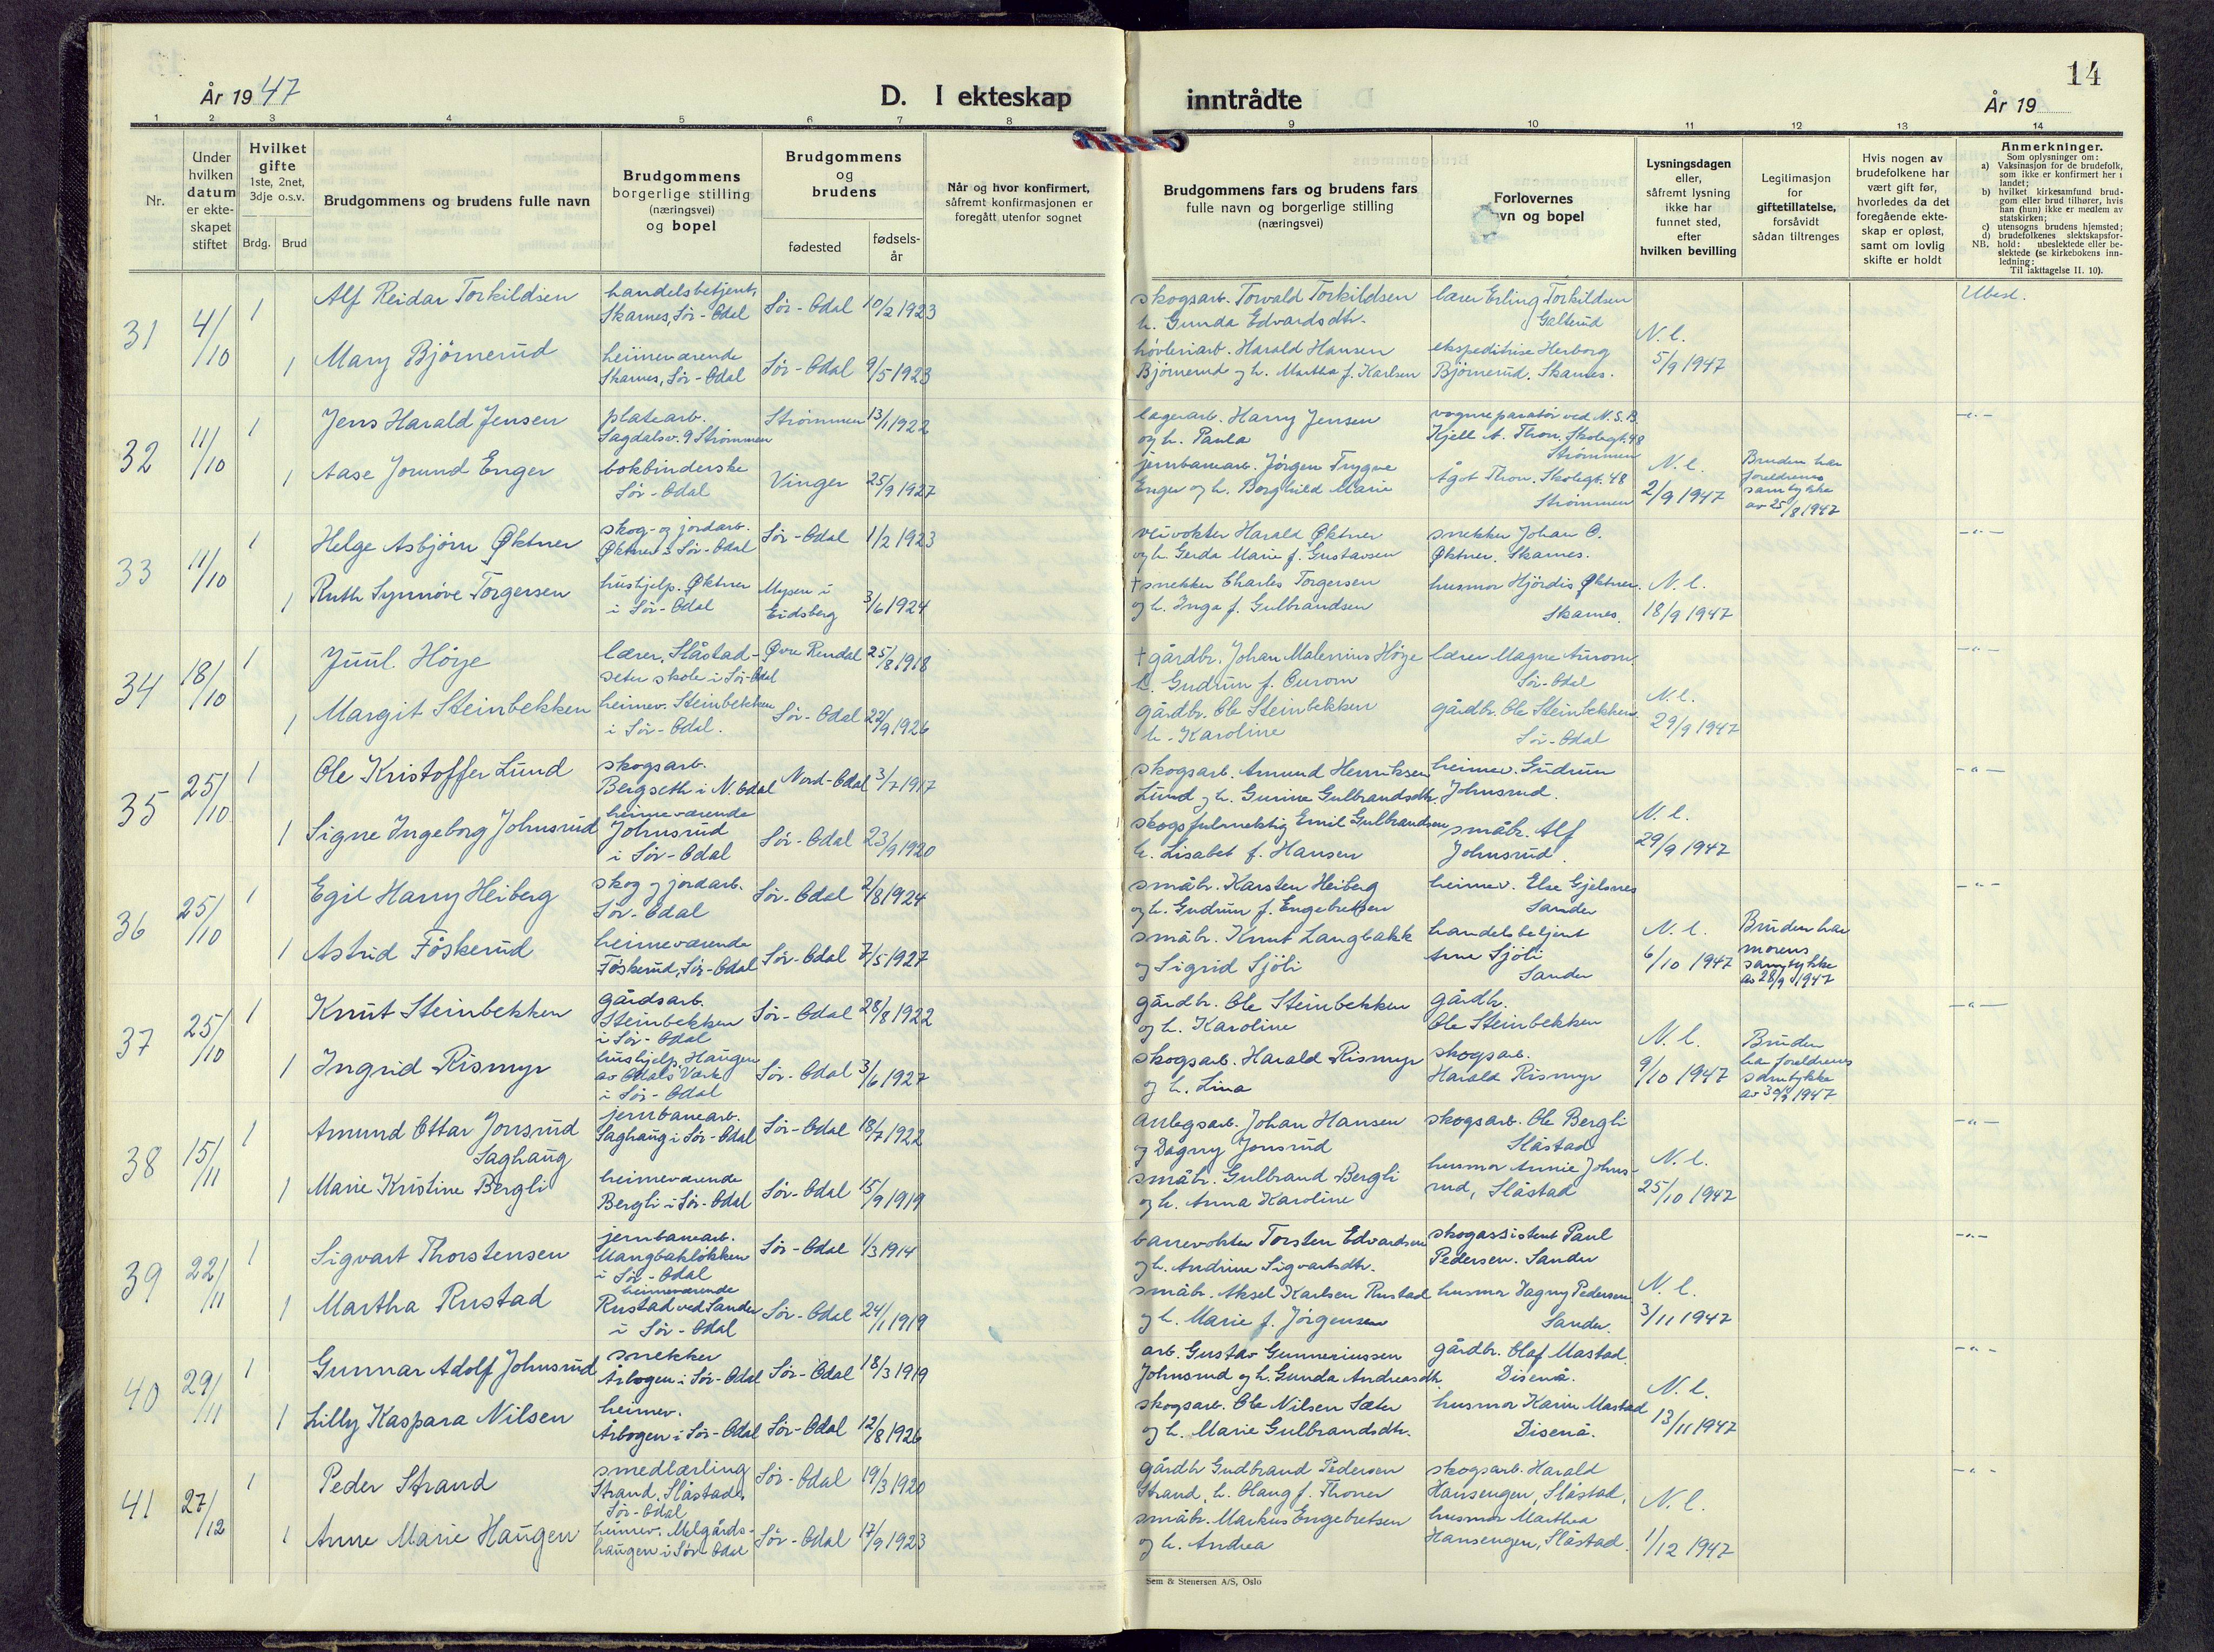 År 1947
D. I ekteskap
inntrådte
14
År 19
1 2 3 4 5 6 7 8 9 10 11 12 13 14
Nr.
Under hvilken datum er ekteskapet stiftet
Hvilket gifte 1ste, 2net, 3dje o.s.v.
Brdg. Brud
Brudgommens og brudens fulle navn
Brudgommens borgerlige stilling (næringsvei) og bopel
Brudgommens og brudens
fødested
fødsels-år
Når og hvor konfirmert, såfremt konfirmasjonen er foregått utenfor sognet
Brudgommens fars og brudens fars fulle navn og borgerlige stilling (næringsvei)
Forlovernes
vn og bopel
Lysningsdagen eller, såfremt lysning ikke har funnet sted, efter hvilken bevilling
Legitimasjon for giftetillatelse, forsåvidt sådan tiltrenges
Hvis nogen av brudefolkene har vært gift før, hvorledes da det foregående ekteskap er opløst, samt om lovlig skifte er holdt
Anmerkninger.
Som oplysninger om:
a) Vaksinasjon for de brudefolk, som ikke er konfirmert her i landet;
b) hvilket kirkesamfund brudgom eller brud tilhører, hvis han (hun) ikke er medlem av statskirken;
c) utensogns brudens hjemsted;
d) brudefolkenes slektskapsforhold: ubeslektede eller beslektede (se kirkebokens innledning:
NB.
Til iakttagelse II. 10).
31
4/10
1
Alf Reidar Torkildsen
handelsbetjent,
Skarnes, Sør-Odal
Sør-Odal
10/2 1923
skogsarb. Torvald Torkildsen
h. Gunda Edvardsdtr.
lærer Erling Torkildsen
Galterud
Ubesl.
1
Mary Bjørnerud
heimeværende
Skarnes, Sør-Odal
Sør-Odal
9/5 1923
høvleriarb. Harald Hansen
Bjørnerud og h. Martha f. Karlsen
ekspeditrise Herborg
Bjørnerud. Skarnes.
N.l.
5/9 1947
32
11/10
1
Jens Harald Jensen
platearb.
Sagdalsv. 9 Strømmen
Strømmen
13/1 1922
lagerarb. Harry Jensen
og h. Paula
vognreparatør ved N.S.B.
Kjell A. Thon. Skolegt. 48
Strømmen
-"-
1
Aase Jorund Enger
bokbinderske
Sør-Odal
Vinger
25/9 1927
jernbanearb. Jørgen Trygve
Enger og h. Borghild Marie
Ågot Thon. Skolegt. 48
Strømmen
N.l.
2/9 1947
Bruden har
foreldrenes
samtykke
av 25/8 1947
33
11/10
1
Helge Asbjørn Øktner
skog- og jordarb.
Øktner i Sør-Odal
Sør-Odal
1/2 1923
veivokter Harald Øktner
og h. Gerda Marie f. Gustavsen
snekker Johan O.
Øktner. Skarnes.
-"-
1
Ruth Synnøve Torgersen
hushjelp. Øktner
i Sør-Odal
Mysen i
Eidsberg
3/6 1924
† snekker Charles Torgersen
og h. Inga f. Gulbrandsen
husmor Hjördis Øktner.
Skarnes.
N.l.
18/9 1947
34
18/10
1
Juul. Höye
lærer, Slåstad-
seter skole i Sør-Odal
Øvre Rendal
25/8 1918
† gårdbr. Johan Malenius Höye
h. Gudrun f. Aurom
lærer Magne Aurom.
Sør-Odal
-"-
1
Margit Steinbekken
heimev. Steinbekken
i Sør-Odal.
Sør-Odal
22/9 1926
gårdbr. Ole Steinbekken
h. Karoline
gårdbr. Ole Steinbekken.
Sør-Odal
N.l.
29/9 1947
35
25/10
1
Ole Kristoffer Lund
skogsarb.
Bergseth i N. Odal
Nord-Odal
3/7 1917
skogsarb. Amund Henriksen
Lund og h. Gurine Gulbrandsdtr.
heimev. Gudrun
Johnsrud.
-"-
1
Signe Ingeborg Johnsrud
heimeværende
Johnsrud
i Sør-Odal
Sør-Odal
23/9 1920
skogsfulmektig Emil Gulbrandsen
h. Lisabet f. Hansen
småbr. Alf
Johnsrud.
N.l.
29/9 1947
36
25/10
1
Egil Harry Heiberg
skog og jordarb.
Sør-Odal
Sør-Odal
2/8 1924
småbr. Karsten Heiberg
og h. Gudrun f. Engebretsen
heimev. Else Gjelsnes
Sander
-"-
1
Astrid Föskerud
heimeværende
Föskerud, Sør-Odal
Sør-Odal
7/5 1927
småbr. Knut Langbakk
og Sigrid Sjöli
handelsbetjent
Arne Sjöli
Sander
N.l.
6/10 1947
Bruden har
morens
samtykke
av 28/9 1947
37
25/10
1
Knut Steinbekken
gårdsarb.
Steinbekken
i Sør-Odal
Sør-Odal
28/8 1922
gårdbr. Ole Steinbekken
og h. Karoline
gårdbr.
Ole Steinbekken
-"-
1
Ingrid Rismyr
hushjelp, Haugen
av Odals Værk
i Sør-Odal
Sør-Odal
3/6 1927
skogsarb. Harald Rismyr
og h. Lina
skogsarb.
Harald Rismyr
N.l.
9/10 1947
Bruden
har foreldrenes
samtykke
av 30/9 1947
38
15/11
1
Amund Ottar Jonsrud
Saghaug
jernbanearb.
Saghaug i Sør-Odal
Sør-Odal
18/7 1922
Anlegsarb. Johan Hansen
og Dagny Jonsrud
skogsarb. Ole Bergli
Slåstad
-"-
1
Marie Kristine Bergli
heimeværende
Bergli i Sør-Odal
Sør-Odal
15/9 1919
småbr. Gulbrand Bergli
og h. Anna Karoline
husmor Annie Johns-
rud, Slåstad
N.l.
25/10 1947
39
22/11
1
Sigvart Thorstensen
jernbanearb.
Mangbakløkken
i Sør-Odal
Sør-Odal
1/3 1914
banevokter Torsten Edvardsen
og h. Andrine Sigvartsdtr.
skogassistent Paul
Pedersen. Sander
-"-
1
Martha Rustad
heimeværende
Rustad ved Sander
i Sør-Odal
Sør-Odal
24/1 1919
småbr. Aksel Karlsen Rustad
og h. Marie f. Jørgensen
husmor Dagny Pedersen.
Sander.
N.l.
3/11 1947
40
29/11
1
Gunnar Adolf Johnsrud
snekker
Årbogen i Sør-Odal
Sør-Odal
18/3 1919
arb. Gustav Gunneriussen
Johnsrud og h. Gunda Andreasdtr.
gårdbr. Olaf Mastad.
Disenå.
-"-
1
Lilly Kaspara Nilsen
heimev.
Årbogen i Sør-Odal
Sør-Odal
12/8 1926
skogsarb. Ole Nilsen Sæter
og h. Marie Gulbrandsdtr.
husmor Karin Mastad
Disenå.
N.l.
13/11 1947
41
27/12
1
Peder Strand
smedlærling
Strand, Slåstad,
Sør-Odal
Sør-Odal
19/3 1920
gårdbr Gudbrand Pedersen
Strand, h. Olaug f. Throner
skogsarb. Harald
Hansengen, Slåstad,
-"-
1
Anne Marie Haugen
heimev. Melgårds-
haugen i Sør-Odal
Sør-Odal
17/9 1923
småbr. Markus Engebretsen
og h. Andrea
husmor Marthea
Hansengen, Slåstad.
N.l.
1/12 1947
Sem & Stenersen A/S, Oslo